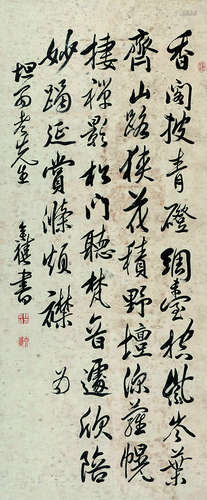 香閣披青磴臺控紫岑葉
齊山路狹花積野壇深蘿幌
棲禪影松門聽梵音遽欣陪
妙躅延賞滌煩襟 为
老先生 書